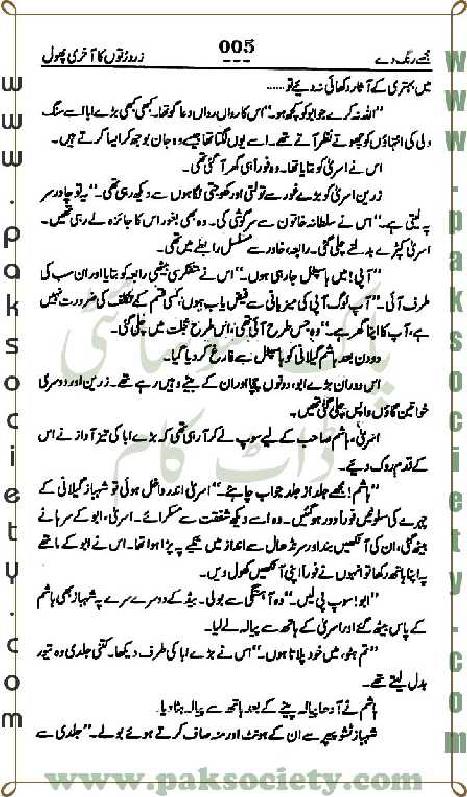 مجھے رنگ دے 005 زرد رُتوں کا آخری پھول
میں بہتری کے آثار دکھائی نہ دیے تو......
”اللہ نہ کرے جو ابو کو کچھ ہو۔“ اس کا رواں رواں دعا گو تھا۔ کبھی کبھی بڑے ابا اسے سنگ
دلی کی انتہاؤں کو چھوتے نظر آتے تھے۔ اسے یوں لگتا تھا جیسے وہ جان بوجھ کر ایسا کرتے ہیں۔
اس نے اسریٰ کو بتایا تھا۔ وہ فوراً ہی گھر آ گئی تھی۔
زرین اسریٰ کو بڑے غور سے تولتی اور کھوجتی نگاہوں سے دیکھ رہی تھی۔ ”یہ تو چادر سر
پہ لیتی ہے۔“ اس نے سلطانہ خاتون سے سرگوشی کی۔ وہ بھی بغور اس کا جائزہ لے رہی تھیں۔
اسریٰ کپڑے بدلنے چلی گئی۔ رابعہ، خاور سے مسلسل رابطے میں تھی۔
”آپی! میں ہاسپٹل جا رہی ہوں۔“ اس نے متفکر سی بیٹھی رابعہ کو بتایا اور ان سب کی
طرف آئی۔ ”آپ لوگ آپی کی میزبانی سے فیض یاب ہوں، کسی قسم کے تکلف کی ضرورت نہیں
ہے، آپ کا اپنا گھر ہے۔“ وہ جس طرح آئی تھی، اسی طرح عجلت میں چلی گئی۔
دو دن بعد ہاشم گیلانی کو ہاسپٹل سے فارغ کر دیا گیا۔
اس دوران بڑے ابو، دونوں چچا اور ان کے بیٹے وہیں رہے تھے۔ زرین اور دوسری
خواتین گاؤں واپس چلی گئی تھیں۔
اسریٰ، ہاشم صاحب کے لیے سوپ لے کر آ رہی تھی کہ بڑے ابا کی تیز آواز نے اس
کے قدم روک دیے۔
”ہاشم! مجھے جلد از جلد جواب چاہئے۔“ اسریٰ اندر داخل ہوئی تو شہباز گیلانی کے
چہرے کی سلوٹیں فوراً دور ہو گئیں۔ وہ اسے دیکھ شفقت سے مسکرائے۔ اسریٰ، ابو کے سرہانے
بیٹھ گئی، ان کی آنکھیں بند اور سر نڈھال سے انداز میں تکیے پہ پڑا ہوا تھا۔ اس نے ابو کے ماتھے
پہ اپنا ہاتھ رکھا تو انہوں نے فوراً اپنی آنکھیں کھول دیں۔
”ابو! سوپ پی لیں۔“ وہ آہستگی سے بولی۔ بیڈ کے دوسرے سرے پہ شہباز بھی ہاشم
کے پاس بیٹھ گئے اور اسریٰ کے ہاتھ سے پیالہ لے لیا۔
”تم ہٹو، میں خود پلاتا ہوں۔“ اس نے بڑے ابا کی طرف دیکھا۔ کتنی جلدی وہ تیور
بدل لیتے تھے۔
ہاشم نے آدھا پیالہ پینے کے بعد ہاتھ سے پیالہ ہٹا دیا۔
شہباز ٹشو پیپر سے ان کے ہونٹ اور منہ صاف کرتے ہوئے بولے۔ ”جلدی سے
پاک سوسائٹی
ڈاٹ کام
www.paksociety.com
www.paksociety.com
www.paksociety.com